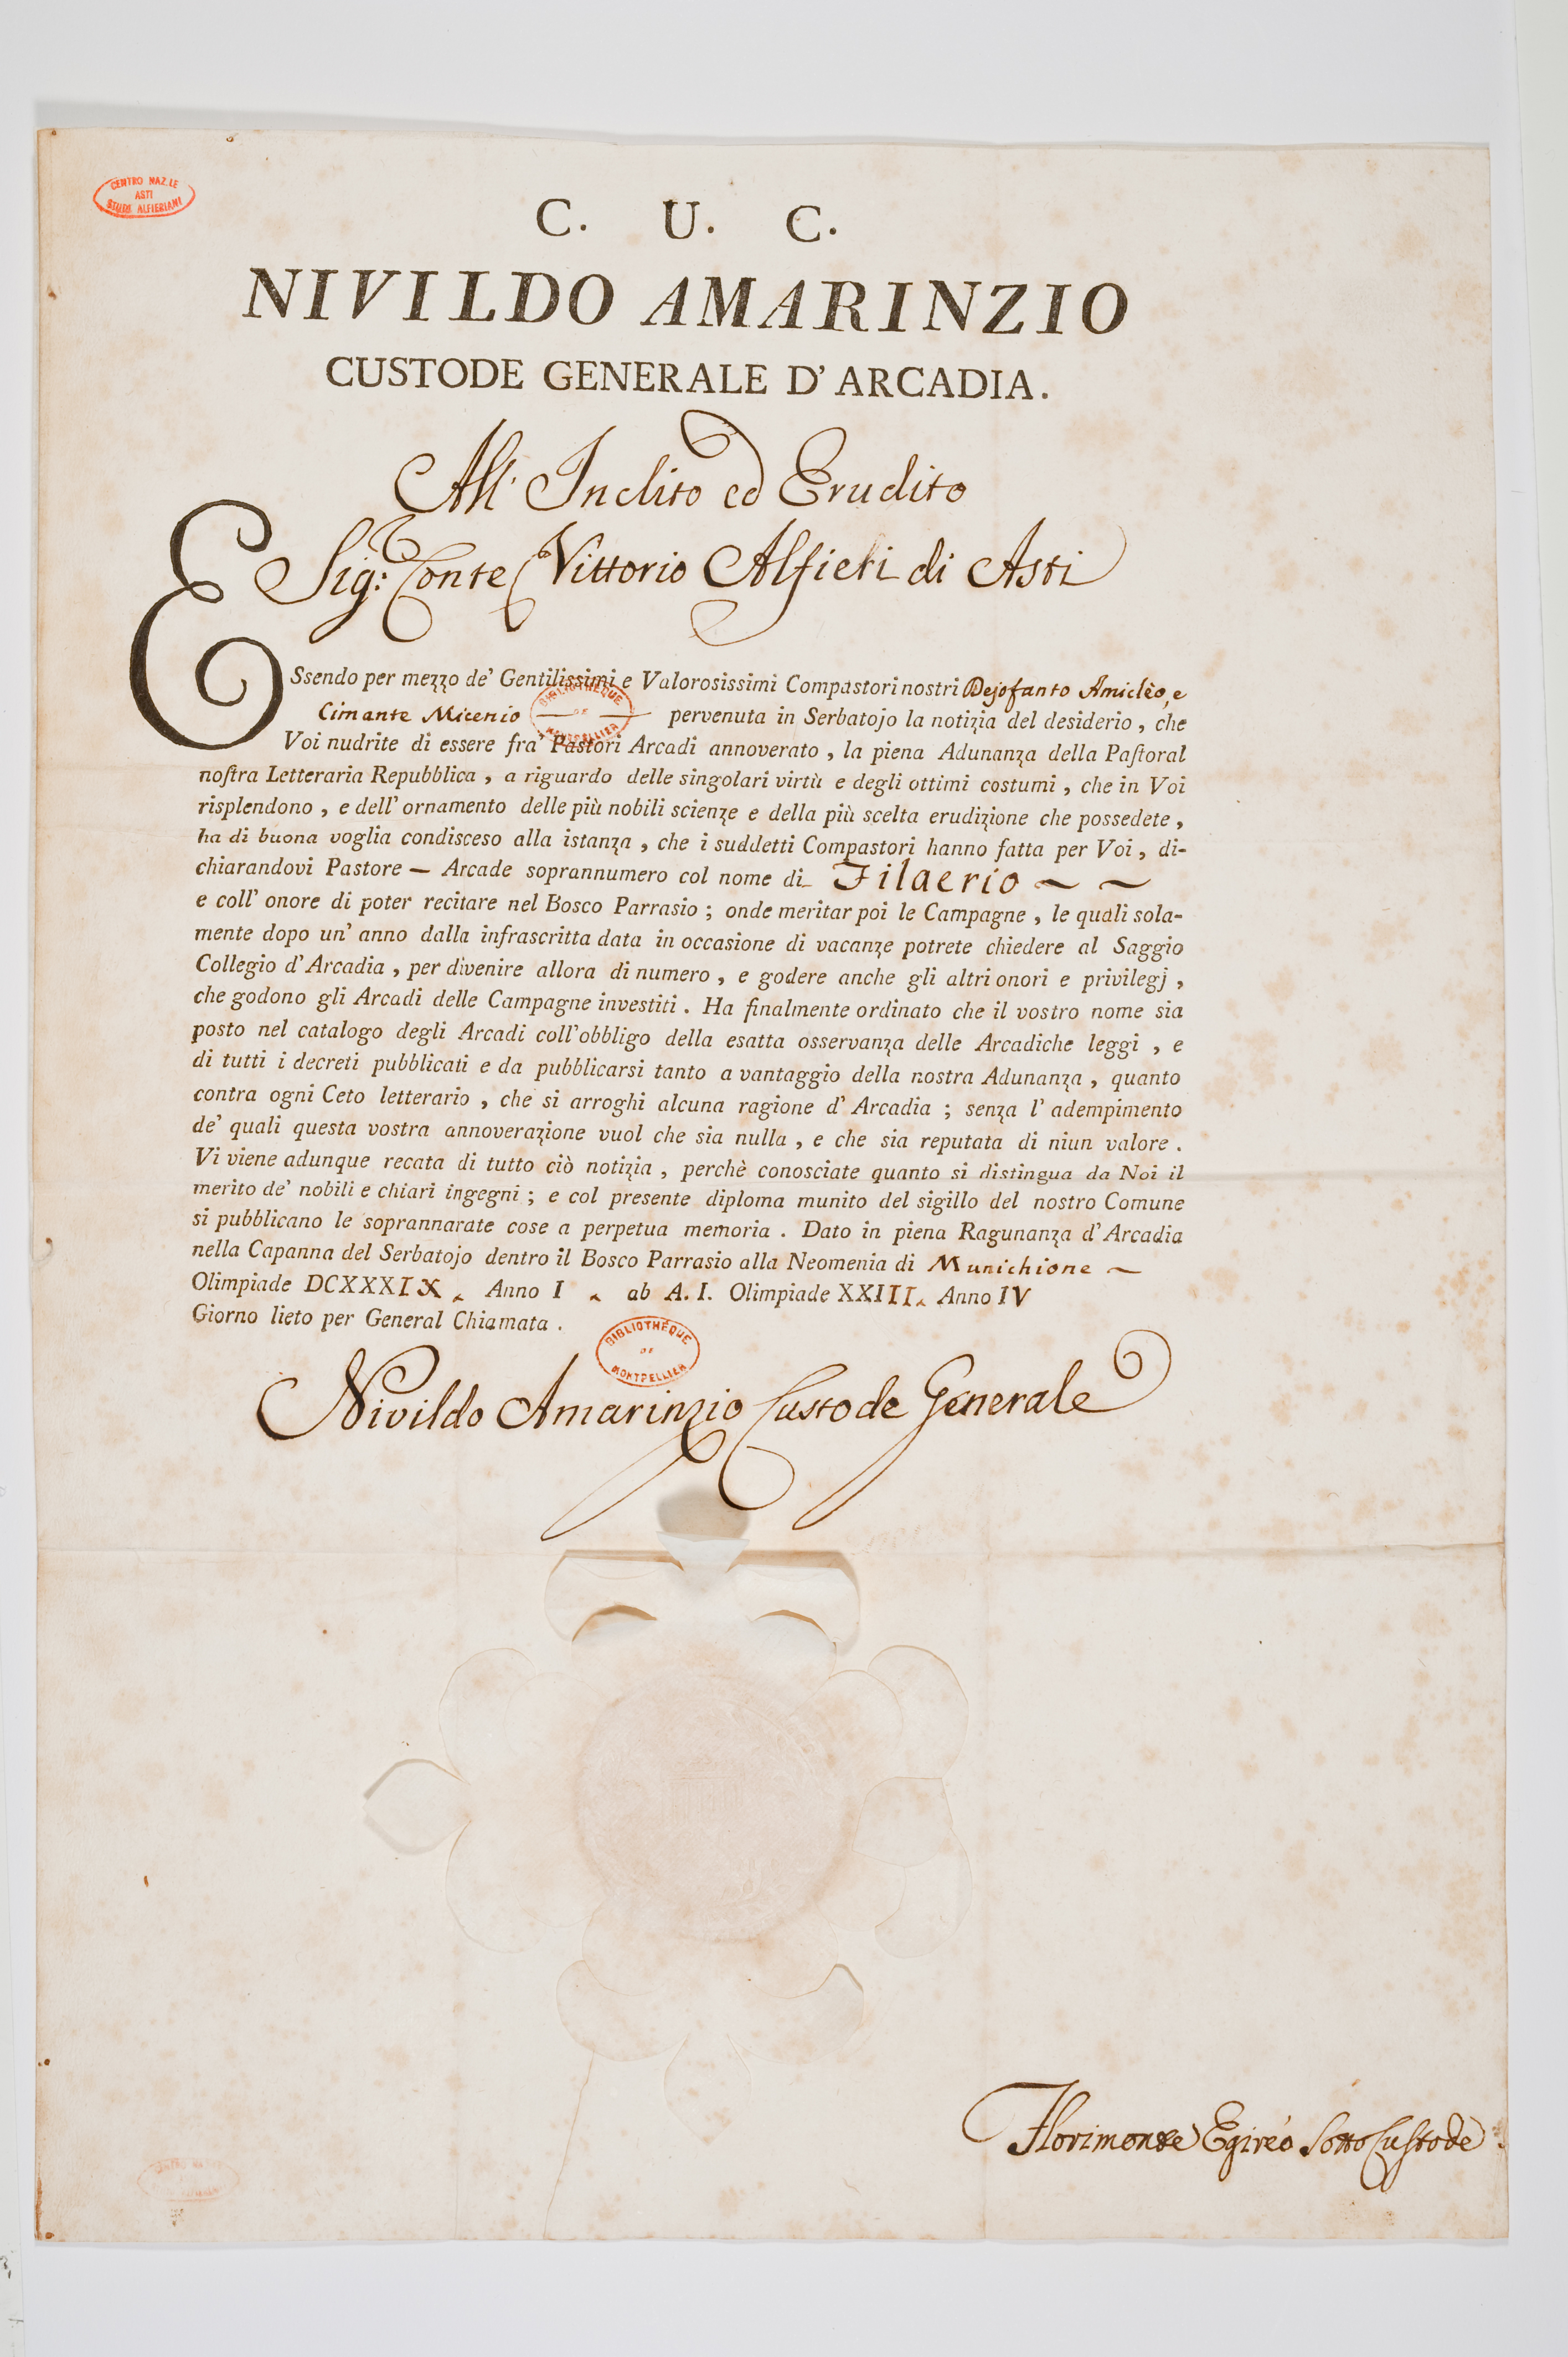 CENTRO NAZ.LE
ASTI
STUDI ALFIERIANI
C. U. C.
NIVILDO AMARINZIO
CUSTODE GENERALE D' ARCADIA.
All' Inclito ed Erudito
Sig: Conte Vittorio Alfieri di Asti
ESsendo per mezzo de' Gentilissimi e Valorosissimi Compastori nostri Dejofanto Amiclèo, e
Cimante Micenio — — pervenuta in Serbatojo la notizia del desiderio, che
BIBLIOTHÈQUE
DE
MONTPELLIER
Voi nudrite di essere fra' Pastori Arcadi annoverato, la piena Adunanza della Paſtoral
noſtra Letteraria Repubblica, a riguardo delle singolari virtù e degli ottimi costumi, che in Voi
risplendono, e dell' ornamento delle più nobili scienze e della più scelta erudizione che possedete,
ha di buona voglia condisceso alla istanza, che i suddetti Compastori hanno fatta per Voi, di-
chiarandovi Pastore — Arcade soprannumero col nome di Filaerio ~ ~
e coll' onore di poter recitare nel Bosco Parrasio; onde meritar poi le Campagne, le quali sola-
mente dopo un' anno dalla infrascritta data in occasione di vacanze potrete chiedere al Saggio
Collegio d' Arcadia, per divenire allora di numero, e godere anche gli altri onori e privilegj,
che godono gli Arcadi delle Campagne investiti. Ha finalmente ordinato che il vostro nome sia
posto nel catalogo degli Arcadi coll' obbligo della esatta osservanza delle Arcadiche leggi, e
di tutti i decreti pubblicati e da pubblicarsi tanto a vantaggio della nostra Adunanza, quanto
contra ogni Ceto letterario, che si arroghi alcuna ragione d' Arcadia; senza l' adempimento
de' quali questa vostra annoverazione vuol che sia nulla, e che sia reputata di niun valore.
Vi viene adunque recata di tutto ciò notizia, perchè conosciate quanto si distingua da Noi il
merito de' nobili e chiari ingegni; e col presente diploma munito del sigillo del nostro Comune
si pubblicano le soprannarate cose a perpetua memoria. Dato in piena Ragunanza d' Arcadia
nella Capanna del Serbatojo dentro il Bosco Parrasio alla Neomenia di Munichione ~
Olimpiade DCXXXIX Anno I ab A. I. Olimpiade XXIII Anno IV
Giorno lieto per General Chiamata.
BIBLIOTHÈQUE
DE
MONTPELLIER
Nivildo Amarinzio Custode Generale
Florimonte Egireo Sotto Custode